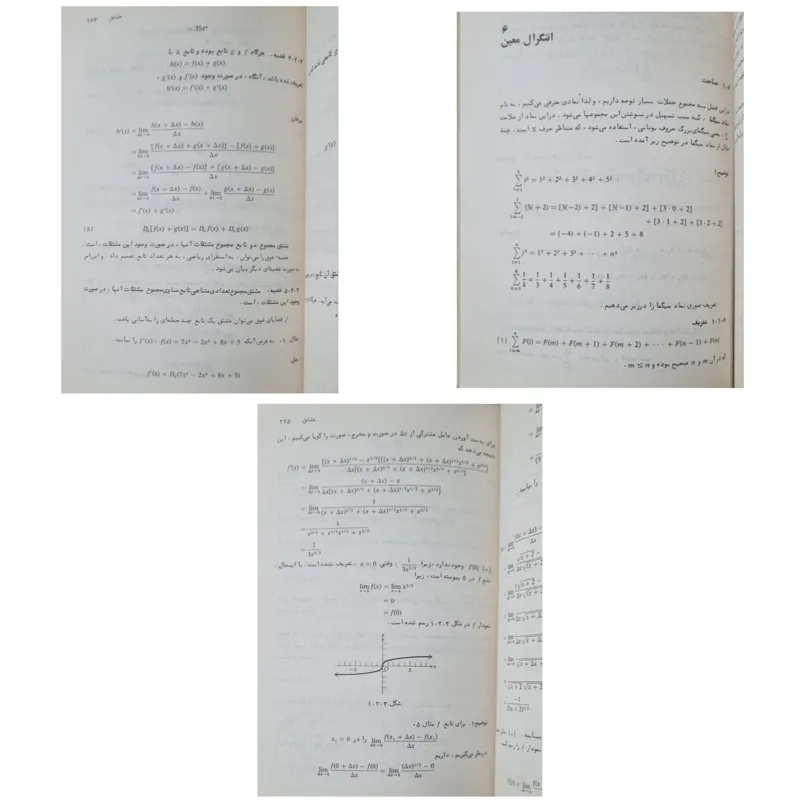 مشتق ۲۶۳
= 35x⁴
۴.۲.۳ قضیه. هرگاه f و g تابع بوده و تابع h با
h(x) = f(x) + g(x)
تعریف شده باشد، آنگاه، در صورت وجود f'(x) و g'(x)،
h'(x) = f'(x) + g'(x)
برهان
h'(x) = lim h(x + Δx) − h(x) / Δx
= lim [f(x + Δx) + g(x + Δx)] − [f(x) + g(x)] / Δx
= lim [f(x + Δx) − f(x)] + [g(x + Δx) − g(x)] / Δx
= lim f(x + Δx) − f(x) / Δx + lim g(x + Δx) − g(x) / Δx
= f'(x) + g'(x).
Dₓ[f(x) + g(x)] = Dₓ f(x) + Dₓ g(x)
مشتق مجموع دو تابع مجموع مشتقات آنها، در صورت وجود این مشتقات، است.
قضیه فوق را می‌توان، به استقرای ریاضی، به هر تعداد تابع تعمیم داد، و این امر
به صورت قضیه‌ای دیگر بیان می‌شود.
۵.۲.۳ قضیه. مشتق مجموع تعدادی متناهی تابع مساوی مجموع مشتقات آنها، در صورت
وجود این مشتقات، است.
از قضایای فوق می‌توان مشتق یک تابع چند جمله‌ای را به‌آسانی یافت.
حل
۶
انتگرال معین
۱.۶ مساحت
در این فصل به مجموع جملات بسیار توجه داریم، و لذا نمادی معرفی می‌کنیم، به نام
نماد سیگما، که سبب تسهیل در نوشتن این مجموعها می‌شود. در این نماد از علامت
Σ، یعنی سیگمای بزرگ حروف یونانی، استفاده می‌شود، که متناظر حرف S است. چند
مثال از نماد سیگما در توضیح زیر آمده است.
توضیح ۱
Σ i² = 1² + 2² + 3² + 4² + 5²
Σ (3i + 2) = [3(−2) + 2] + [3(−1) + 2] + [3 · 0 + 2]
+ [3 · 1 + 2] + [3 · 2 + 2]
= (−4) + (−1) + 2 + 5 + 8
Σ j³ = 1³ + 2³ + 3³ + · · · + n³
Σ 1/k = 1/3 + 1/4 + 1/5 + 1/6 + 1/7 + 1/8
تعریف صوری نماد سیگما را در زیر می‌دهیم.
۱.۱.۶ تعریف
(۱) Σ F(i) = F(m) + F(m + 1) + F(m + 2) + · · · + F(n − 1) + F(n)
که در آن m و n صحیح بوده و m ≤ n.
مشتق ۲۴۵
برای به دست آوردن عامل مشترکی از Δx در صورت و مخرج، صورت را گویا می‌کنیم. این
نتیجه می‌دهد که
f'(x) = lim [(x + Δx)¹ᐟ³ − x¹ᐟ³][(x + Δx)²ᐟ³ + (x + Δx)¹ᐟ³x¹ᐟ³ + x²ᐟ³] / Δx[(x + Δx)²ᐟ³ + (x + Δx)¹ᐟ³x¹ᐟ³ + x²ᐟ³]
= lim (x + Δx) − x / Δx[(x + Δx)²ᐟ³ + (x + Δx)¹ᐟ³x¹ᐟ³ + x²ᐟ³]
= lim 1 / (x + Δx)²ᐟ³ + (x + Δx)¹ᐟ³x¹ᐟ³ + x²ᐟ³
= 1 / x²ᐟ³ + x¹ᐟ³x¹ᐟ³ + x²ᐟ³
= 1 / 3x²ᐟ³
f'(0) وجود ندارد، زیرا 1/3x²ᐟ³، وقتی x = 0، تعریف نشده است. با اینحال،
تابع f در 0 پیوسته است، زیرا
lim f(x) = lim x¹ᐟ³
= 0
= f(0)
نمودار f در شکل ۱.۲.۳ رسم شده است.
شکل ۱.۲.۳
توضیح ۱. برای تابع f مثال ۵،
lim f(x₁ + Δx) − f(x₁) / Δx را در x₁ = 0
در نظر می‌گیریم. داریم
lim f(0 + Δx) − f(0) / Δx = lim (Δx)¹ᐟ³ − 0 / Δx